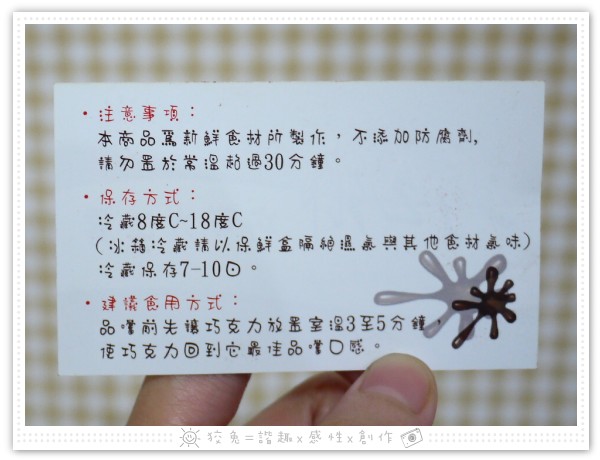 ・注意事項：
本商品為新鮮食材所製作，不添加防腐劑,
請勿置於常溫超過30分鐘。
・保存方式：
冷藏8度C~18度C
(冰箱冷藏請以保鮮盒隔絕濕氣與其他食材氣味)
冷藏保存7-10日。
・建議食用方式：
品嚐前先讓巧克力放置室溫3至5分鐘，
使巧克力回到它最佳品嚐口感。
狡兔=諧趣x感性x創作